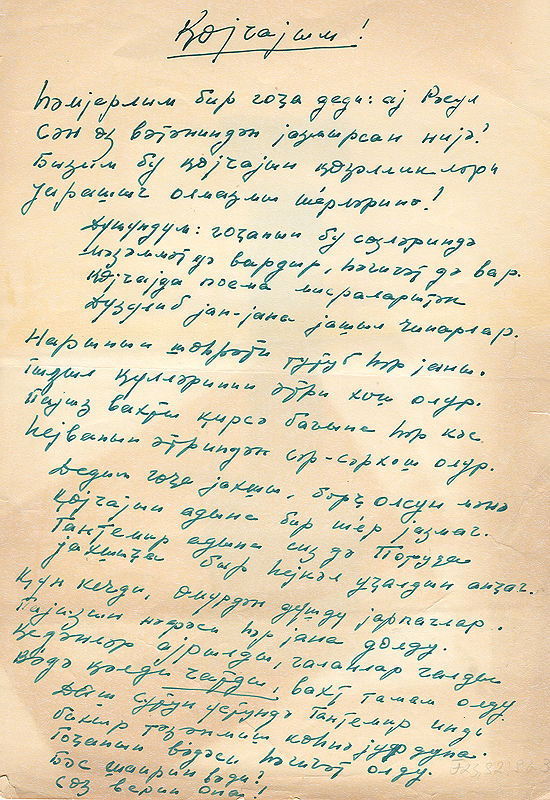 Ҝөјчајым!
Һәмјерлим бир гоҹа деди: ај Рәсул
Сән өз вәтәниндән јазмырсан нијә?
Бизим бу Ҝөјчајын ҝөзәлликләри
Јарашыг олмазмы ше'рләринә!
Дүшүндүм: гоҹанын бу сөзләриндә
мәзәммәт дә вардыр, һәгигәт дә вар.
Ҝөјчајда поема мисралары тәк
Дүзүлүб јан-јана јашыл чинарлар.
Нарынын шөһрәти тутуб һәр јаны.
Гызыл ҝүлләринин әтри хош олур.
Пајыз вахты ҝирсә бағына һәр кәс
һејванын әтриндән сәр-сәрхош олур.
Дедим гоҹа јахшы, борҹ олсун мәнә
Ҝөјчајын адына бир ше'р јазмаг.
Гантемир адына сиз дә
јахшыҹа бир һејкәл уҹалдын анҹаг.
Ҝүн кечди, өмүрдән дүшдү јарпаглар.
Пајызын нәрәси һәр јана долду.
Ҝедәнләр ајрылды, галанлар галды
Вә'дә ҝәлди чатды, вахт тамам олду
Даш сүтун үстүндә Гантемир инди
бахыр тәзәләнмиш көһнә јурдуна.
Гоҹанын вә'дәси һәгигәт олду.
Бәс шаирин вә'ди?
Сөз верин она!